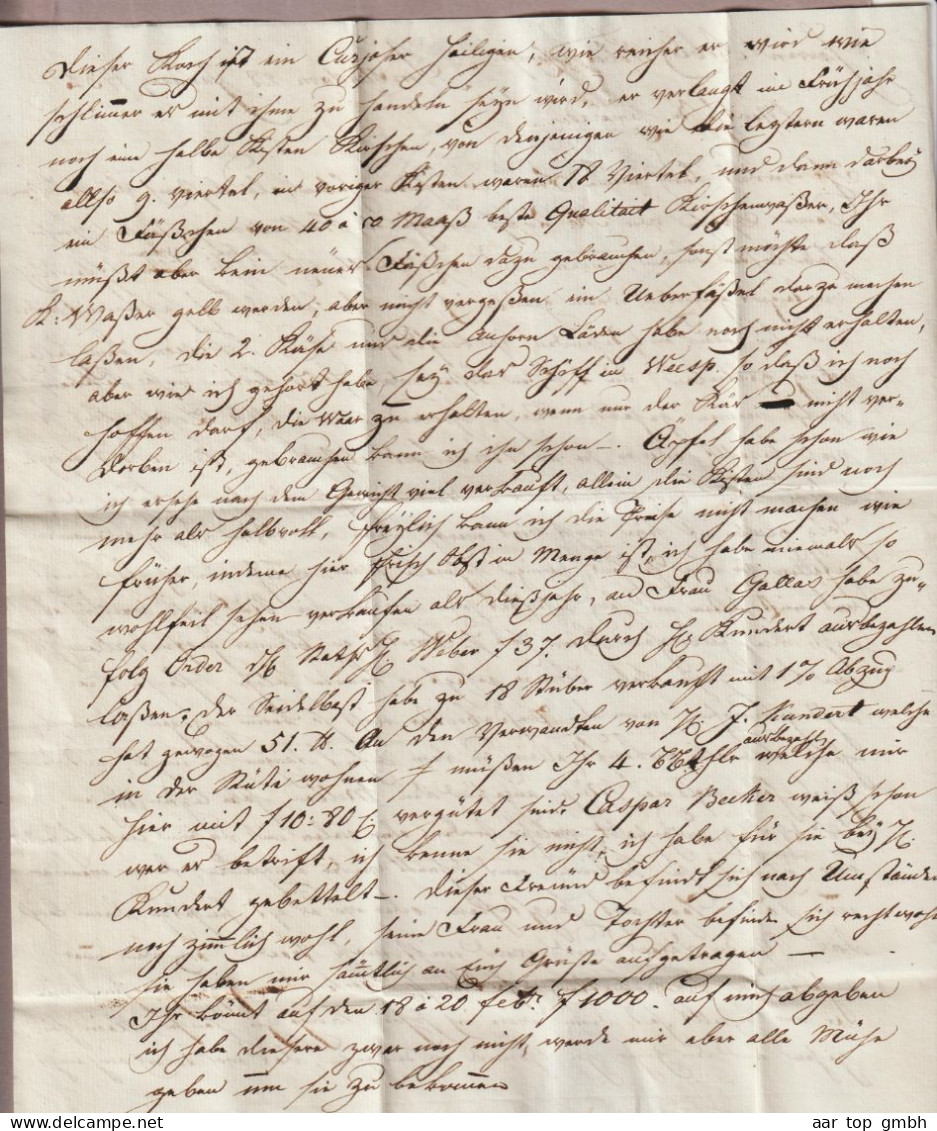 Dieser Koch ist ein Curjoser Heiligen, wie reicher er wird wie
schlimer es mit ihme zu handeln seyn wird, er verlangt im Frühjahr
noch eine halbe Kisten Kirschen, von denjenigen wie die letztern waren
allso 9. Viertel, in voriger Kisten waren 18 Viertel, und dann darbey
ein Fäßchen von 40 à 50 Maaß beste Qualitait Kirschenwaßer, Ihr
müßt aber kein neües Fäßchen dazu gebrauchen, sonst möchte daß
K: Waßer gelb werden, aber nicht vergeßen ein Ueberfäßel darzu machen
laßen, die 2. Käse und die Ahorn Läden habe noch nicht erhalten,
aber wie ich gehört habe, sey das Schiff in Weesp. so daß ich noch
hoffen darf, die Waar zu erhalten, wenn nur der Käs nicht ver-
dorben ist, gebrauchen kann ich ihn schon -. Äpfel habe schon wie
ich ersehe nach dem Gewicht viel verkauft, allein die Kisten sind noch
mehr als halbvoll, freÿlich kann ich die Preise nicht machen wie
früher, indeme hier frisch Obst in Menge ist, ich habe niemals so
wohlfeil sehen verkaufen als dießjahr, an Frau Gallas habe zu-
folg Order Hr. Rathsh. Weber f 37. durch H. Kundert ausbezahlen
laßen, der Seidelbast habe zu 18 Stüber verkauft mit 1% Abzug
hat gewogen 51. ℔. An den Verwandten von H. J. Kundert welche
in der Rüti wohnen müßen Ihr 4. Thlr ausbezahlt welche mir
hier mit f 10:80 C. vergütet sind. Caspar Becker weiß schon
wer es betrift, ich kenne sie nicht, ich habe für sie beÿ H.
Kundert gebettelt -. Dieser Freünd befindt sich nach Umständen
noch zimlich wohl, seine Frau und Tochter befinden sich recht wohl
sie haben mir sämtlich an Eüch Grüße aufgetragen -
Ihr könnt auf den 18 à 20 febr. f 1000. auf mich abgeben
ich habe diesere zwar noch nicht, werde mir aber alle Mühe
geben um sie zu bekommen
aar top gmbh